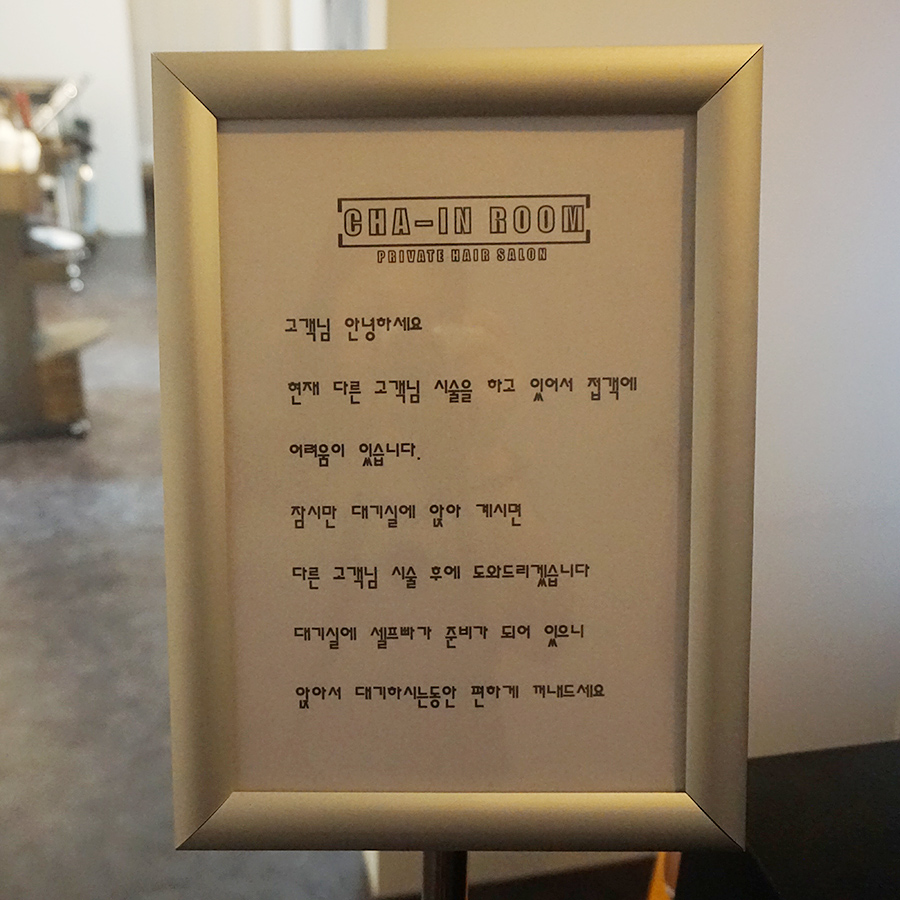 CHA-IN ROOM
PRIVATE HAIR SALON
고객님 안녕하세요
현재 다른 고객님 시술을 하고 있어서 접객에
어려움이 있습니다.
잠시만 대기실에 앉아 계시면
다른 고객님 시술 후에 도와드리겠습니다
대기실에 셀프빠가 준비가 되어 있으니
앉아서 대기하시는동안 편하게 꺼내드세요